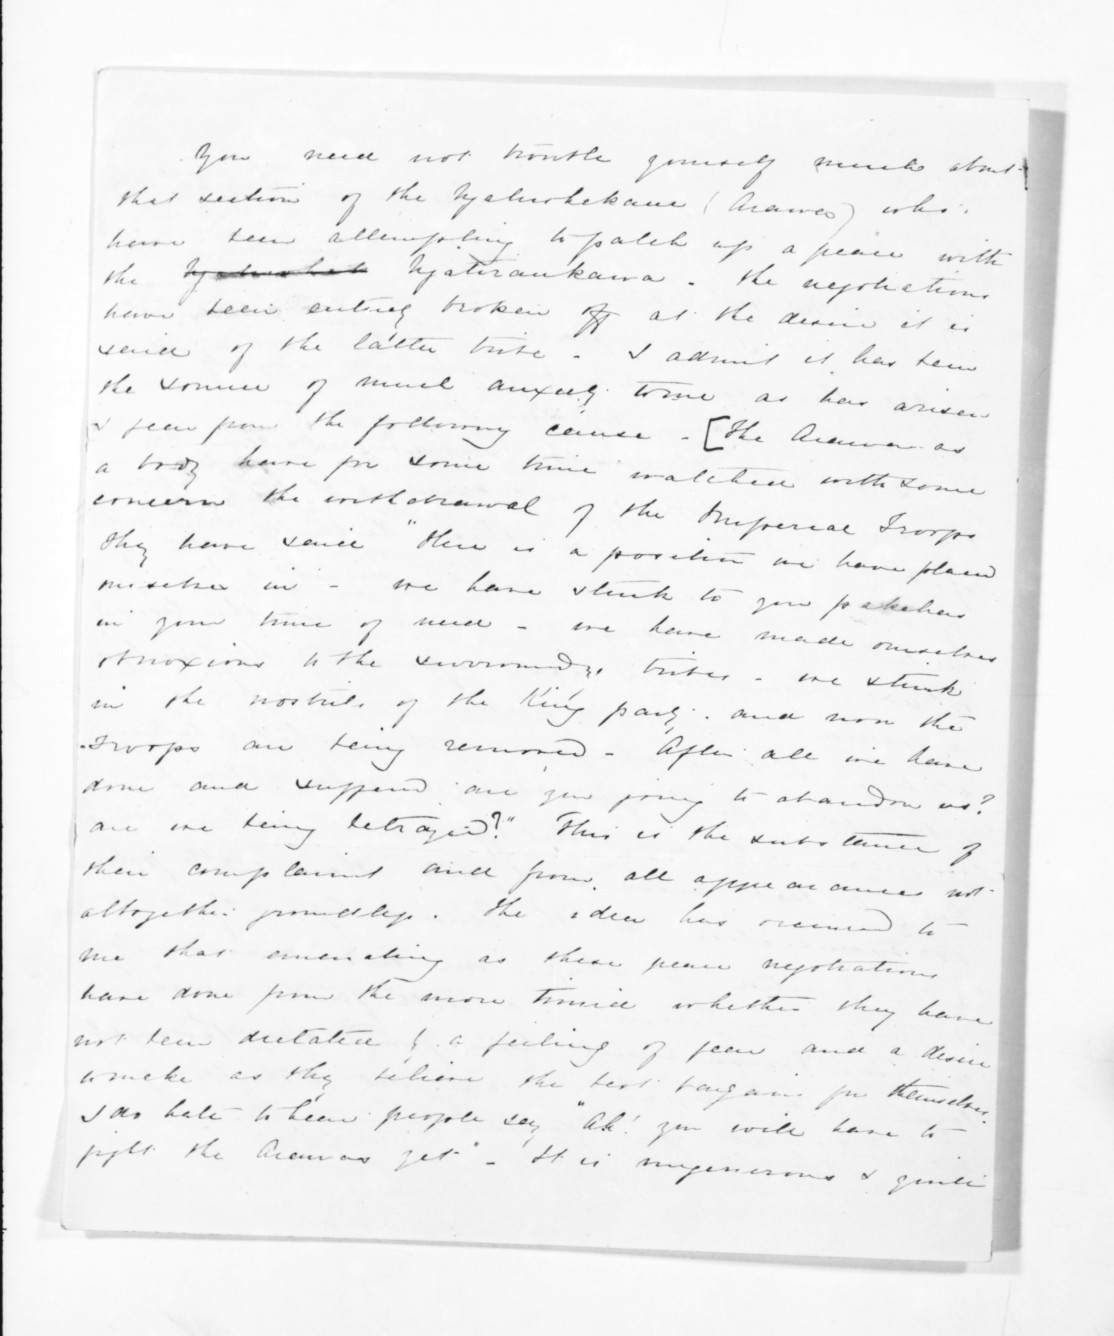 You need not trouble yourself much about
that section of the Ngatiwhakaue (Arawa) who
have been attempting to patch up a peace with
the Ngatiwhak Ngatiraukawa - the negotiations
have been entirely broken off at the desire it is
said of the latter tribe - I admit it has been
the source of much anxiety to me as has arisen
& fear from the following cause - [The Arawa as
a body have for some time watched with some
concern the withdrawal of the Imperial Troops
they have said "this is a position we have placed
in - we have stuck to you pakehas
in your time of need - we have made ourselves
obnoxious to the surrounding tribes - we stink
in the nostrils of the King party. and now the
Troops are being removed - After all we have
done and suffered are you going to abandon us?
are we being betrayed?" This is the substance of
their complaint and from all appearances not
altogether groundless. The idea has occurred to
me that emanating as these peace negotiations
have done from the more timid whether they have
not been dictated by a feeling of fear and a desire
to make as they believe the best bargain for themselves.
I do hate to hear people say "Ah! you will have to
fight the Arawas yet" - It is ungenerous &